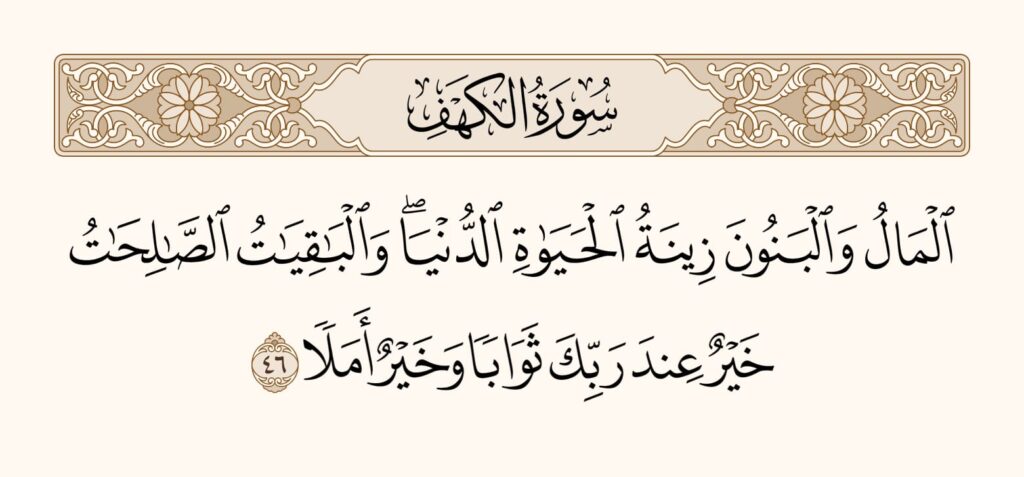 سُورَةُ الكَهْفِ
ٱلْمَالُ وَٱلْبَنُونَ زِينَةُ ٱلْحَيَوٰةِ ٱلدُّنْيَاۖ وَٱلْبَٰقِيَٰتُ ٱلصَّٰلِحَٰتُ
خَيْرٌ عِندَ رَبِّكَ ثَوَابًا وَخَيْرٌ أَمَلًا ٤٦